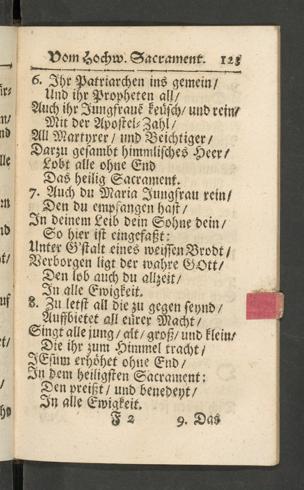 Vom Hochw. Sacrament. 123
6. Ihr Patriarchen ins gemein/
Und ihr Propheten all/
Auch ihr Jungfrauē keüsch/ und rein/
Mit der Apostel-Zahl/
All Martyrer/ und Beichtiger/
Darzu gesambt himmlisches Heer/
Lobt alle ohne End
Das heilig Sacrament.
7. Auch du Maria Jungfrau rein/
Den du empfangen hast/
In deinem Leib dein Sohne dein/
So hier ist eingefaßt:
Unter G'stalt eines weissen Brodt/
Verborgen ligt der wahre GOtt/
Den lob auch du allzeit/
In alle Ewigkeit.
8. Zu letst all die zu gegen seynd/
Auffbietet all eürer Macht/
Singt alle jung/ alt/ groß/ und klein/
Die ihr zum Himmel tracht/
JEsum erhöhet ohne End/
In dem heiligsten Sacrament:
Den preißt/ und benedeyt/
In alle Ewigkeit.
F 2 9. Das